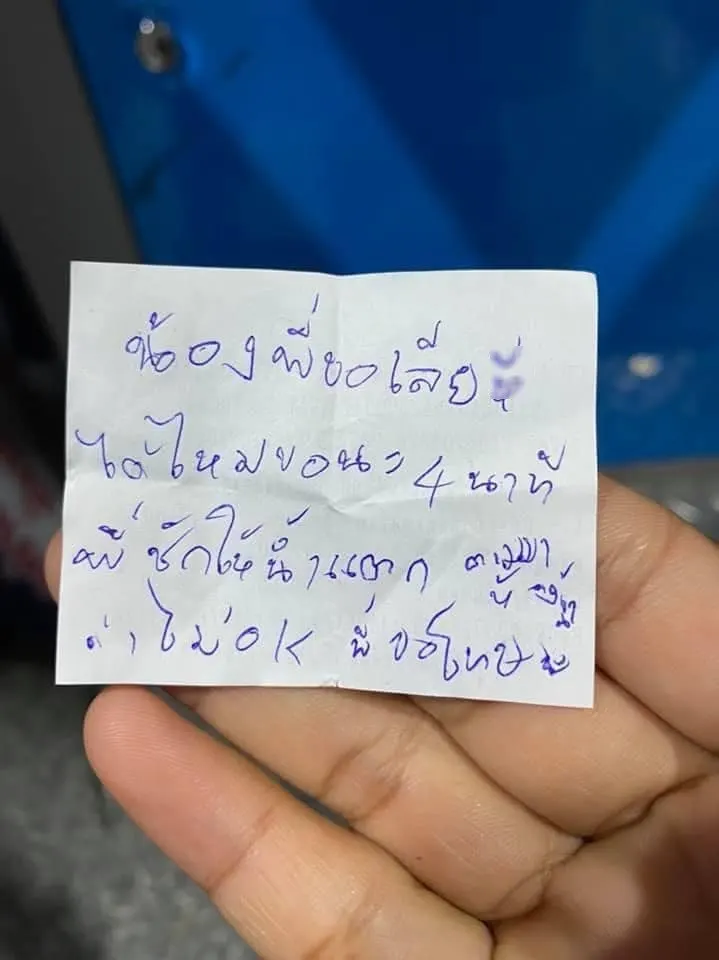 น้องพี่ขอเลีย
ได้ไหมขอนะ 4 นาที
พี่ชักให้น้ำแตก ตามมา
ถ้าไม่ OK พี่ขอโทษ